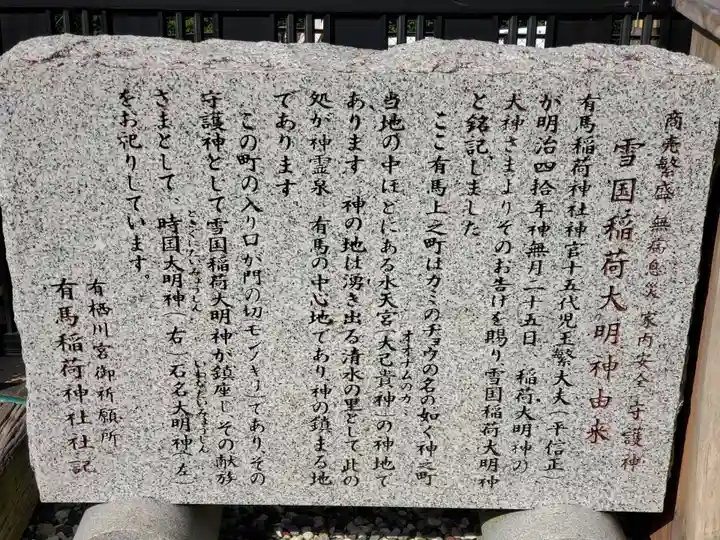 商売繁盛 無病息災 家内安全 守護神
雪国稲荷大明神由来
有馬稲荷神社神官十五代児玉繁大夫(平信正)
が明治四拾年神無月二十五日、稲荷大明神の
大神さまよりそのお告けを賜り雪国稲荷大明神
と銘記しました。
ここ有馬上之町はカミのチョウの名の如く神之町
当地の中ほとにある水天宮(大己貴神)の神地て
オオナムのカ
あります 神の地は湧き出る清水の里として此の
処が神霊泉 有馬の中心地であり神の鎮まる地
であります。
この町の入り口が門の切モン ノ キリ)であり、その
守護神として雪国稲荷大明神が鎮座しその献務
さまとして、時国大明神(右)石名大明神(左)
ときくにだいみょうしん
いわなだいみょうじん
をお祀りしています。
有栖川宮御祈願所
有馬稲荷神社社記